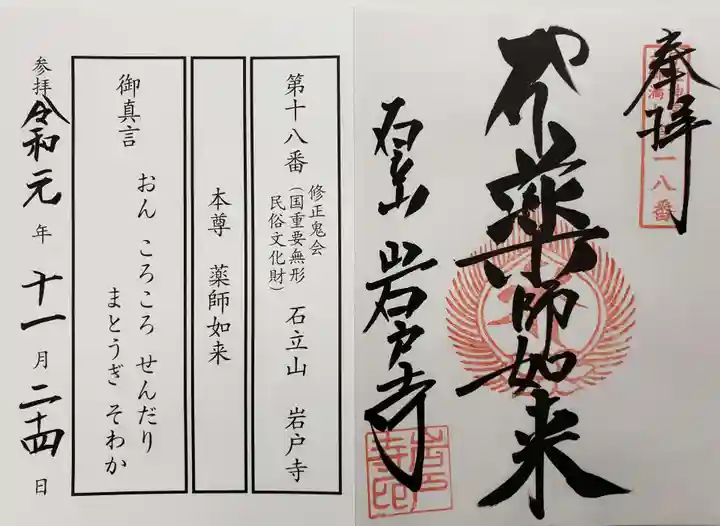 奉拝
一八番
薬師如来
石立山
岩戸寺
第十八番
修正鬼会
(国重要無形
民俗文化財)
石立山 岩戸寺
本尊 薬師如来
御真言
おん ころころ せんだり
まとうぎ そわか
参拝 令和元年十一月二十四日